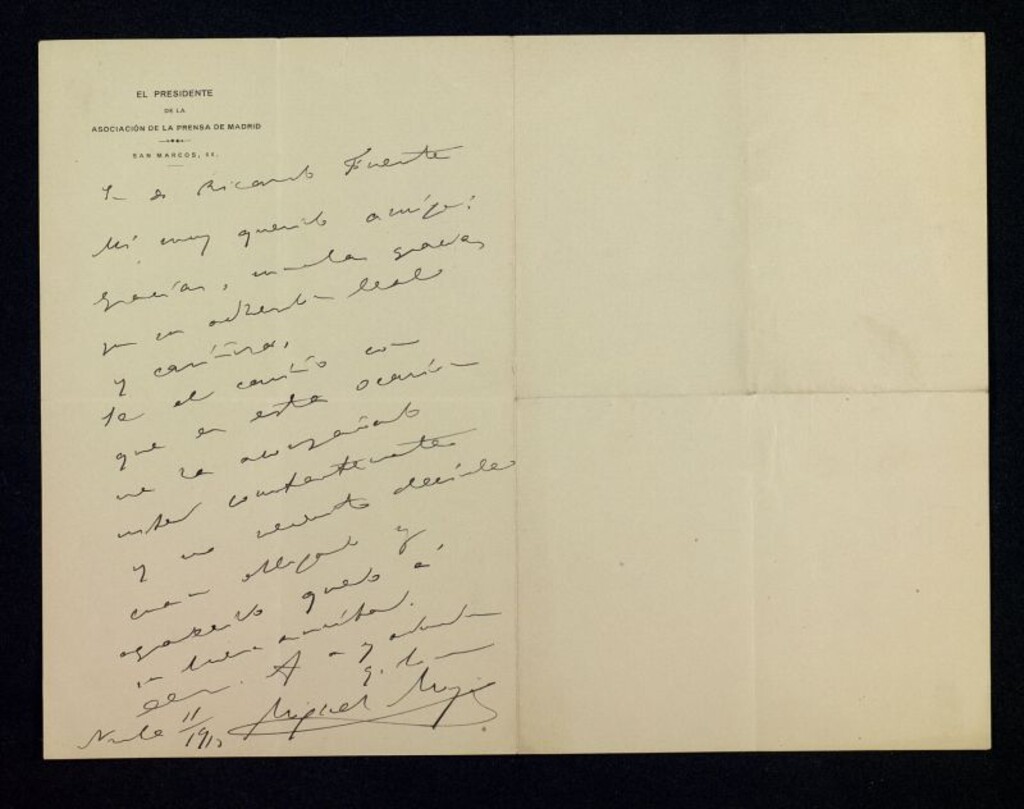 EL PRESIDENTE
DE LA
ASOCIACIÓN DE LA PRENSA DE MADRID
SAN MARCOS, 44.
Sr D Ricardo Fuente
Mi muy querido amigo:
Gracias, muchas gracias
por su leal
y cariñosa.
Se el cariño con
que en esta ocasión
me ha acompañado
usted constantemente
y no necesito decirle
cuan obligado y
agradecido quedo á
su buena amistad.
Miguel Moya